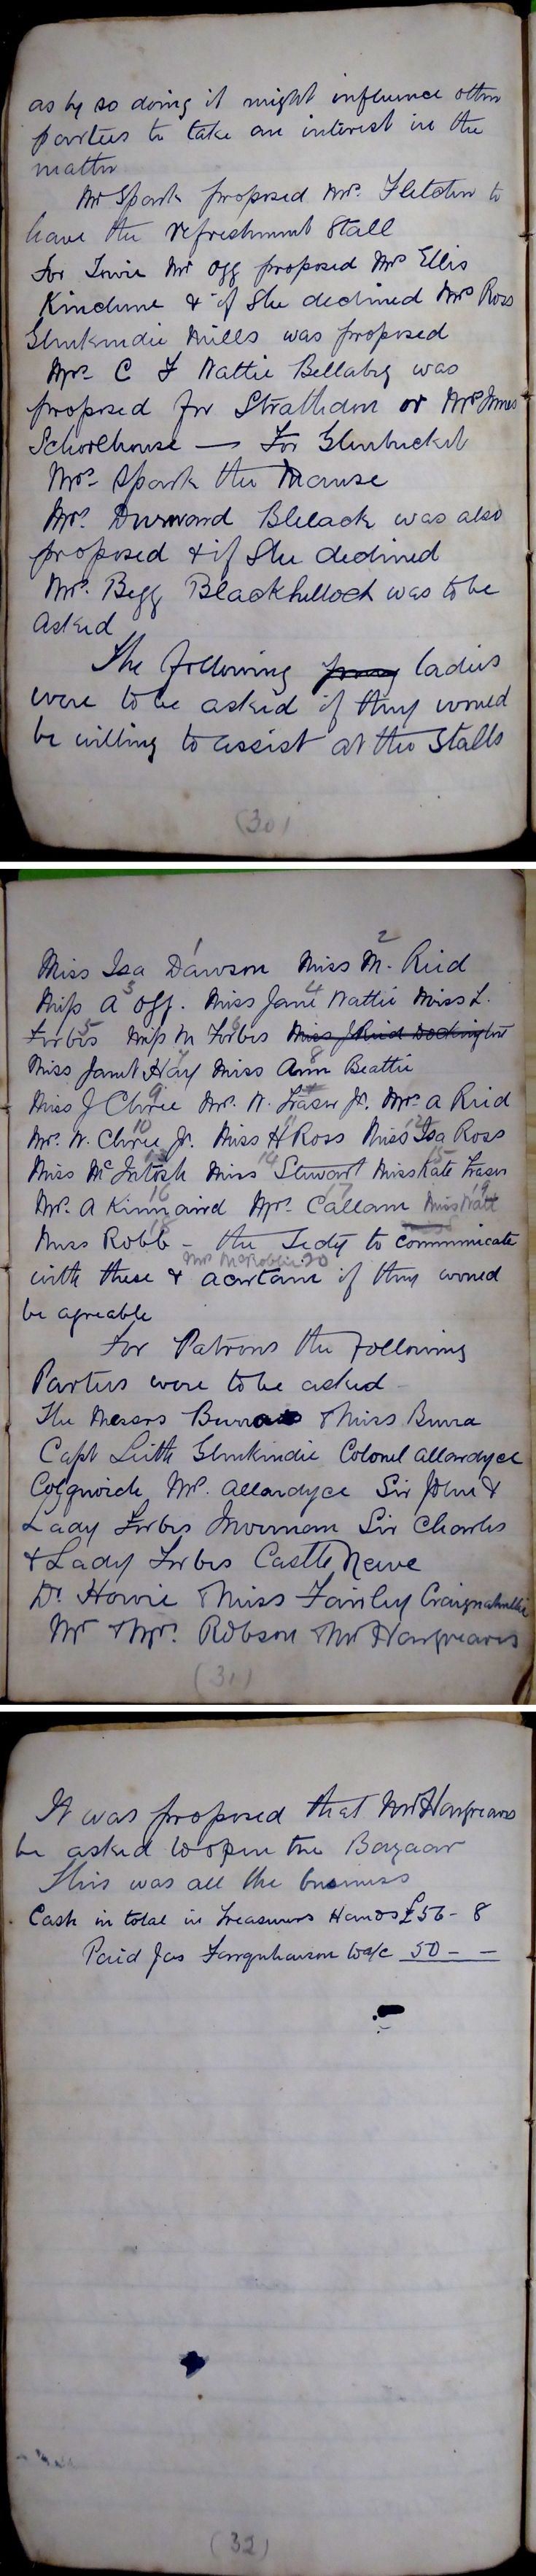 as by so doing it might influence other
parties to take an interest in the
matter
Mr Spark proposed Mrs. Fletcher to
have the refreshment Stall
for Towie Mr Ogg proposed Mrs Ellis
Kinclune & if She declined Mrs Ross
Glenkindie Mills was proposed
Mrs. C F Wattie Bellabeg was
proposed for Strathdon or Mrs Innes
Schoolhouse — For Glenbucket
Mrs. Spark the Manse
Mrs. Durward Blelack was also
proposed & if She declined
Mrs. Begg Blackhilloch was to be
asked
The following ladies
were to be asked if they would
be willing to assist at the Stalls
(30)
1 2
Miss Isa Dawson Miss M. Reid
Miss A Ogg. Miss Jane Wattie Miss L.
Forbes Miss M Forbes Miss J Reid
Miss Janet Hay Miss Ann Beattie
Miss J Clyne Mrs. W. Fraser Jr. Mrs. A Reid
Mrs. W. Clyne Jr. Miss H Ross Miss Isa Ross
Miss McIntosh Miss Stewart Miss Kate Fraser
Mrs. A Kinnaird Mrs. Callam Miss Watt
Miss Robb - the Secty to communicate
Mrs McRobbie 20
with these & acertain if they would
be agreable
For Patrons the following
Parties were to be asked
The Messrs Burra & Miss Burra
Capt Leith Glenkindie Colonel Allardyce
Colquoich Mrs. Allardyce Sir John &
Lady Forbes Invernan Sir Charles
& Lady Forbes Castle Newe
Dr Howie & Miss Fairley
Mr & Mrs. Robson & Mr Hargreaves
(31)
It was proposed that Mr Hargreaves
be asked to open the Bazaar
This was all the business
Cash in total in Treasurers Hands £56 - 8
Paid Jas Farquharson to a/c 50 - -
(32)